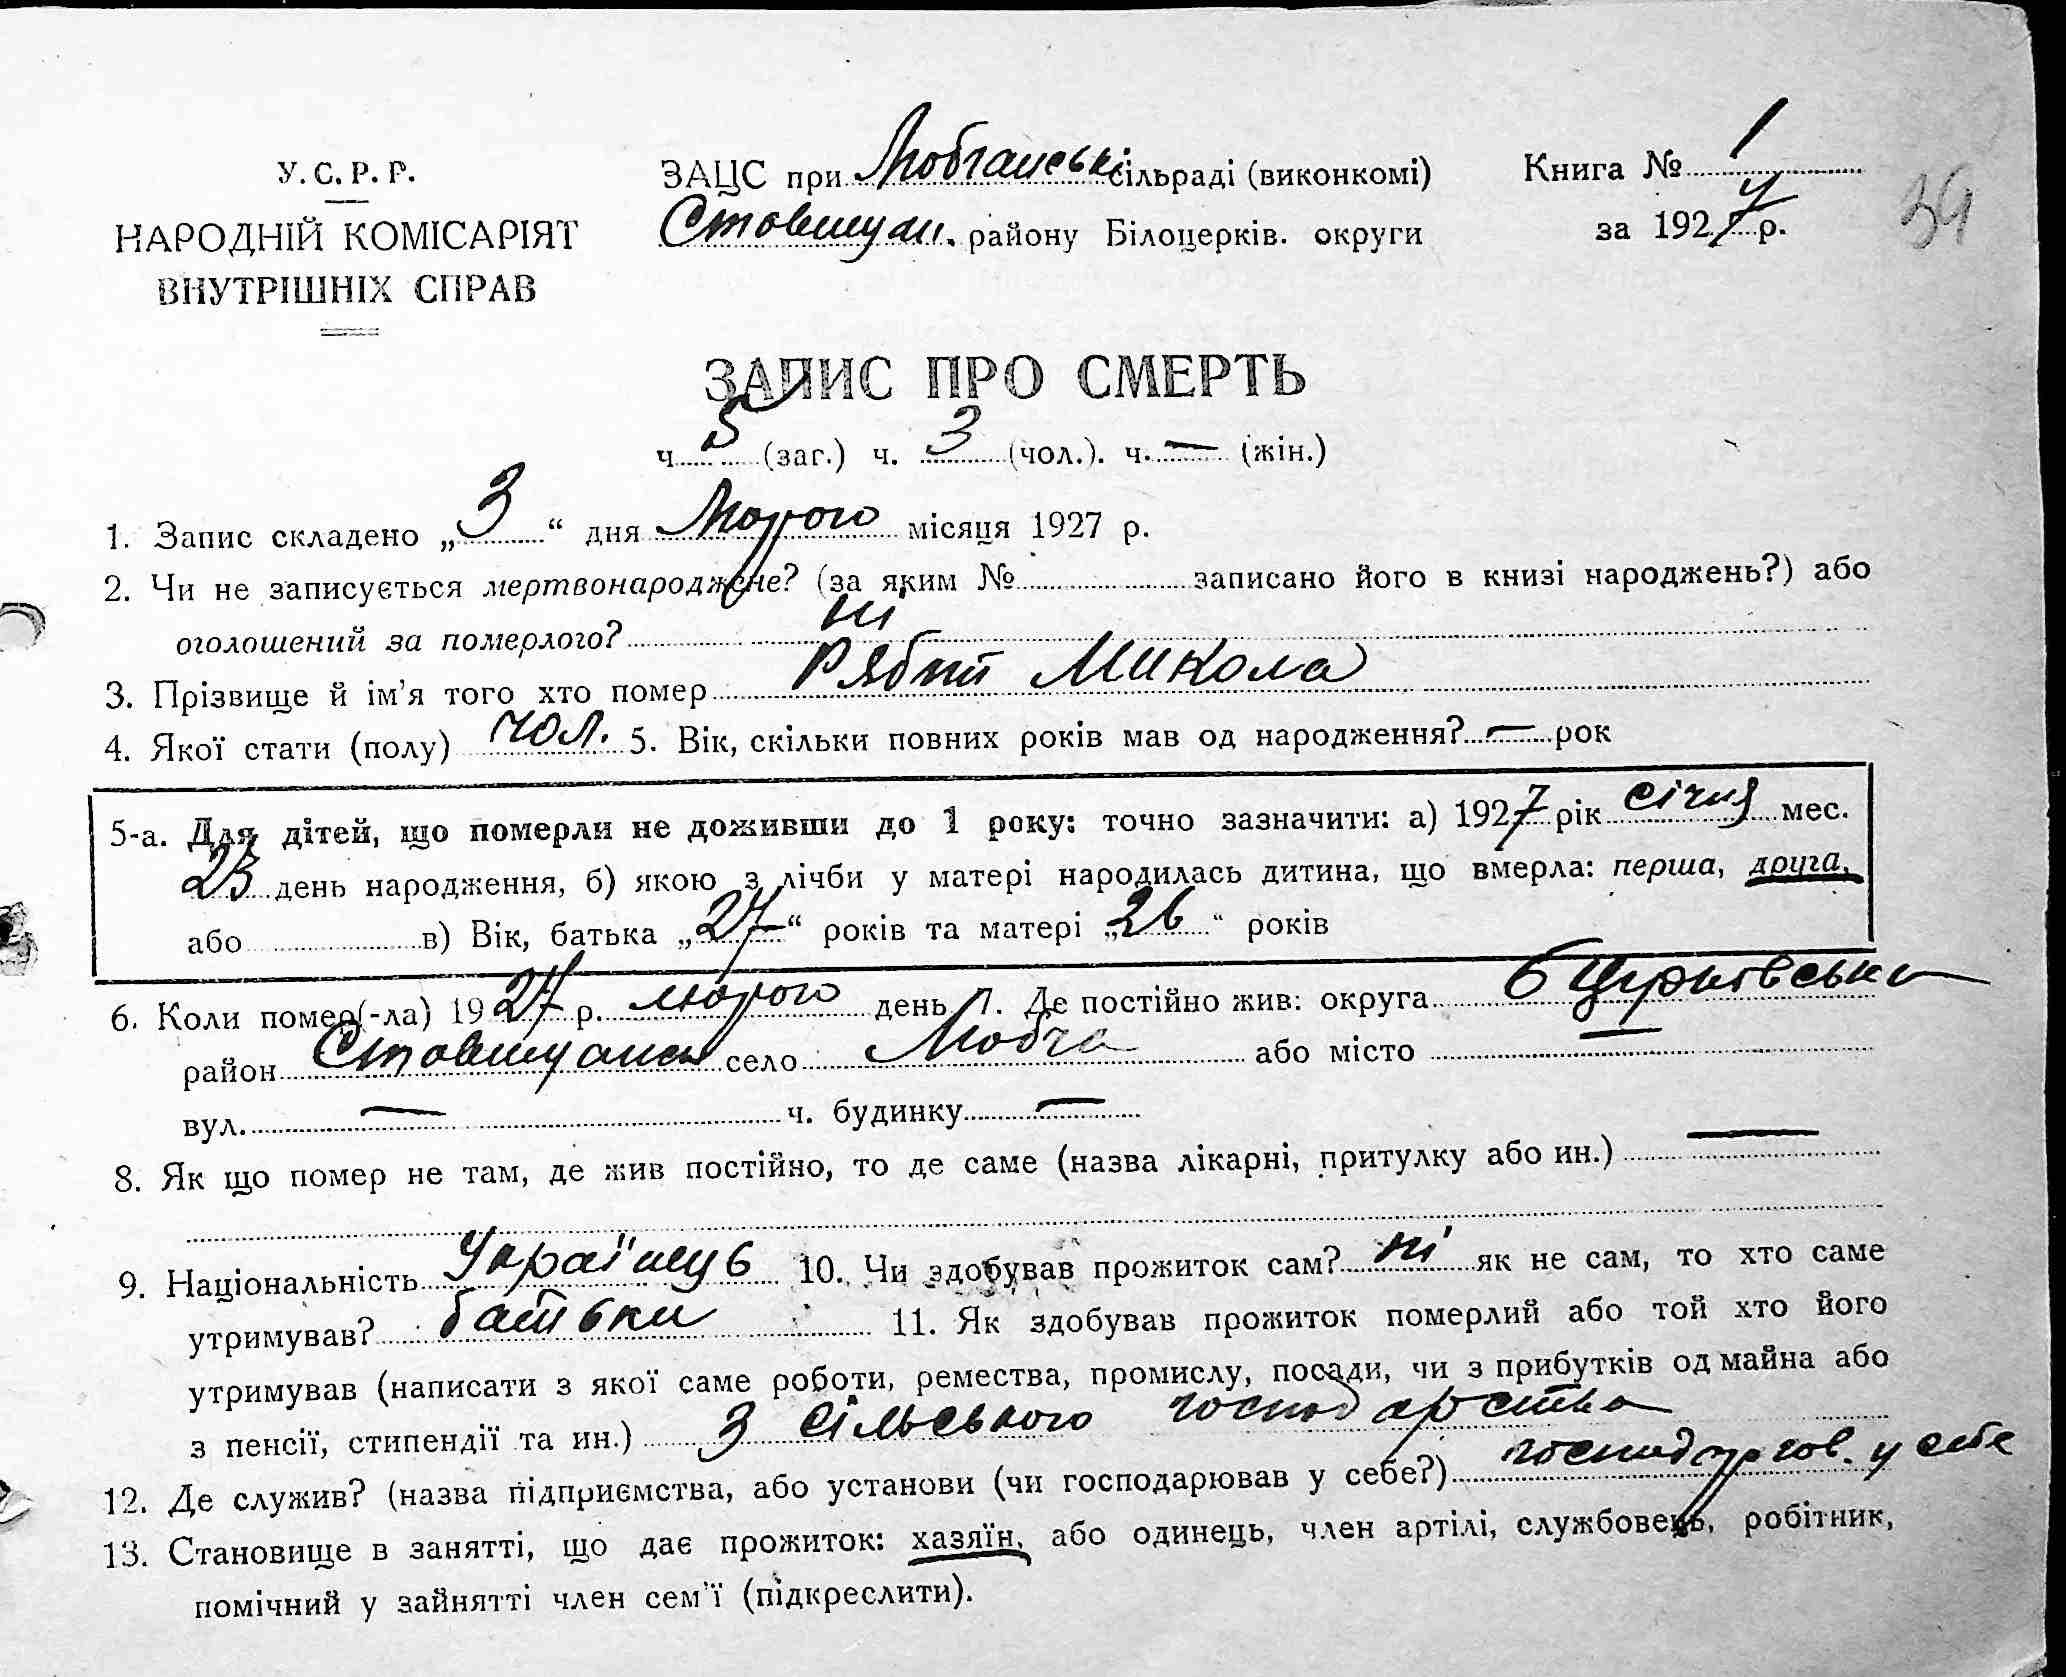 У. С. Р. Р.
НАРОДНІЙ КОМІСАРІЯТ
ВНУТРІШНІХ СПРАВ
ЗАЦС при Любчанські сільраді (виконкомі)
Ставищан. району Білоцерків. округи
Книга № 1
за 1927 р.
39
ЗАПИС ПРО СМЕРТЬ
ч. 5 (заг.) ч. 3 (чол.). ч. — (жін.)
1. Запис складено „3“ дня Лютого місяця 1927 р.
2. Чи не записується мертвонароджене? (за яким № записано його в книзі народжень?) або
оголошений за померлого? ні
3. Прізвище й ім’я того хто помер Рябий Микола
4. Якої стати (полу) чол. 5. Вік, скільки повних років мав од народження? — рок
5-а. Для дітей, що померли не доживши до 1 року: точно зазначити: а) 1927 рік січня мес.
23 день народження, б) якою з лічби у матері народилась дитина, що вмерла: перша, друга,
або в) Вік, батька „27“ років та матері „26“ років
6. Коли помер(-ла) 1927 р. лютого день 7. Де постійно жив: округа Б Церківська
район Ставищанськ село Любча або місто —
вул. — ч. будинку —
8. Як що помер не там, де жив постійно, то де саме (назва лікарні, притулку або ин.) —
9. Національність Українець 10. Чи здобував прожиток сам? ні як не сам, то хто саме
утримував? батьки 11. Як здобував прожиток померлий або той хто його
утримував (написати з якої саме роботи, ремества, промислу, посади, чи з прибутків од майна або
з пенсії, стипендії та ин.) З сільського господарства
12. Де служив? (назва підприємства, або установи (чи господарював у себе?) господарюв. у себе
13. Становище в занятті, що дає прожиток: хазяїн, або одинець, член артілі, службовець, робітник,
помічний у зайнятті член сем’ї (підкреслити).